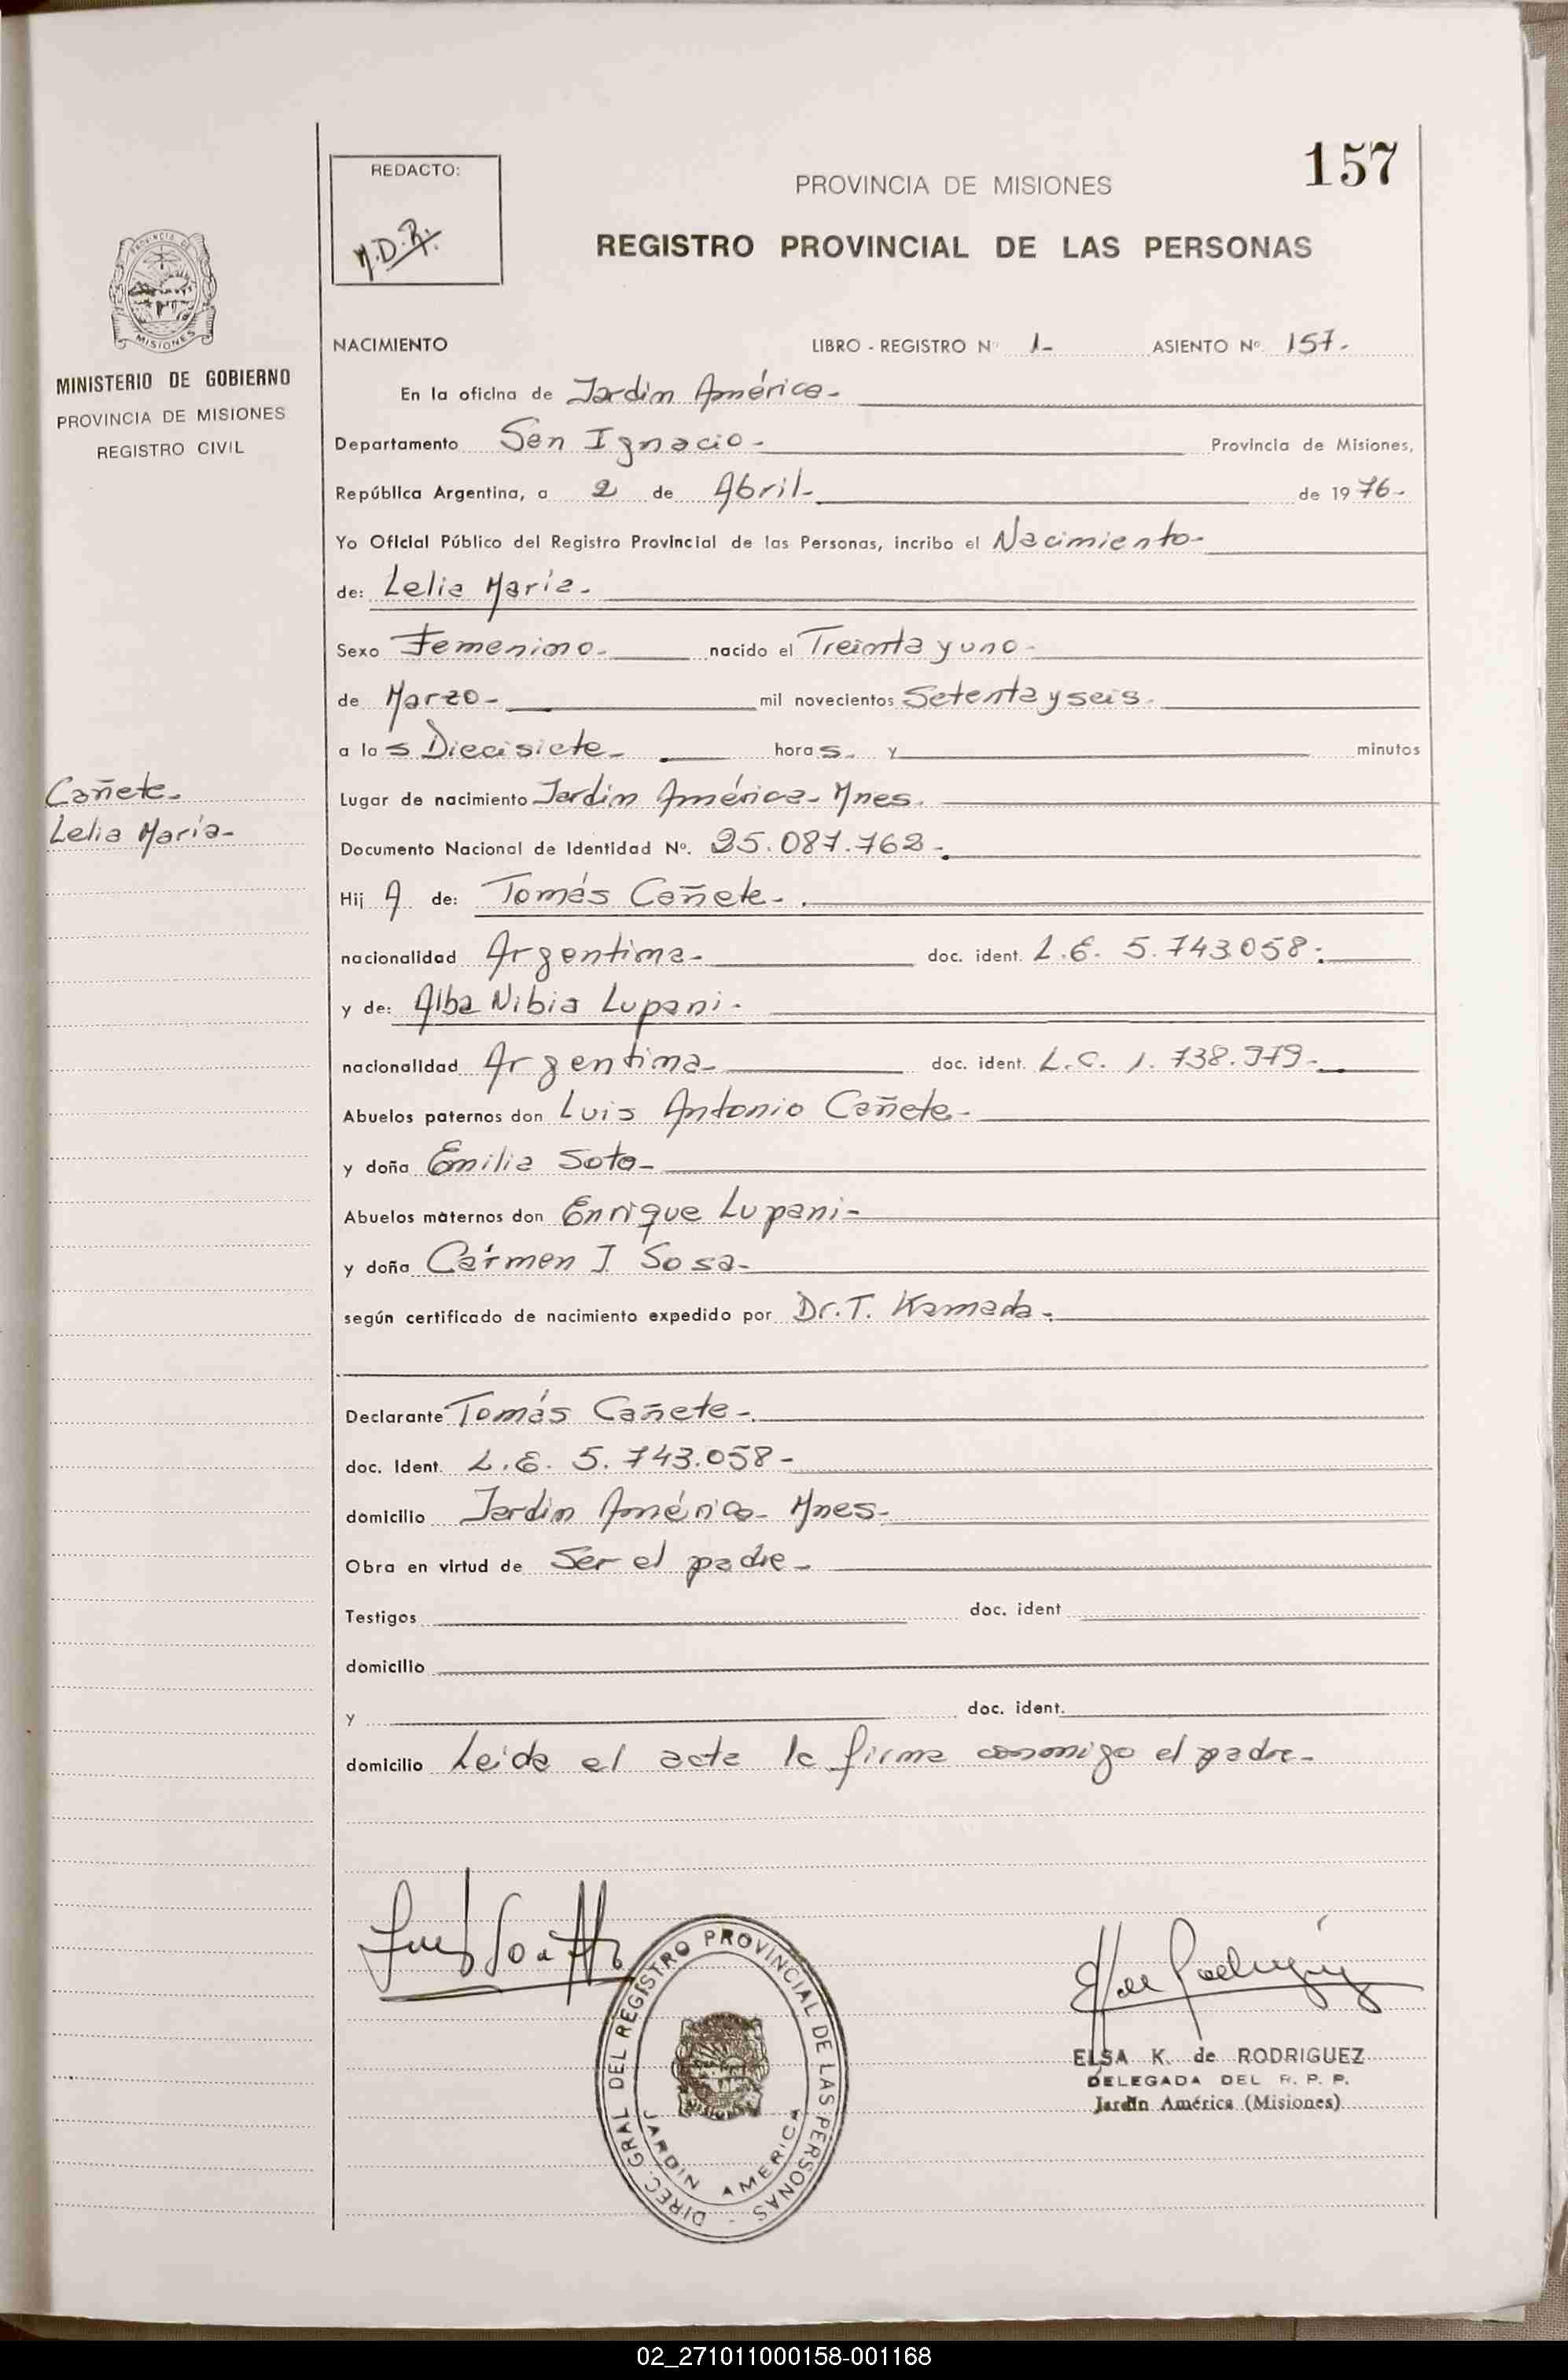 157
REDACTO:
M.D.R.
PROVINCIA DE MISIONES
REGISTRO PROVINCIAL DE LAS PERSONAS
PROVINCIA DE
MISIONES
MINISTERIO DE GOBIERNO
PROVINCIA DE MISIONES
REGISTRO CIVIL
NACIMIENTO LIBRO - REGISTRO Nº 1- ASIENTO Nº 157.-
En la oficina de Jardín América-
Departamento San Ignacio- Provincia de Misiones,
República Argentina, a 2 de Abril- de 1976-
Yo Oficial Público del Registro Provincial de las Personas, incribo el Nacimiento-
de: Lelia María-
Sexo Femenino- nacido el Treinta y uno-
de Marzo- mil novecientos Setenta y seis.
a las Diecisiete- horas. y minutos
Lugar de nacimiento Jardín América- Mnes.
Cañete-
Lelia María-
Documento Nacional de Identidad Nº. 25.087.762-
Hij A de: Tomás Cañete-
nacionalidad Argentina- doc. ident. L.E. 5.743.058-
y de: Alba Nibia Lupani-
nacionalidad Argentina- doc. ident. L.C. 1.738.979-
Abuelos paternos don Luis Antonio Cañete-
y doña Emilia Soto-
Abuelos maternos don Enrique Lupani-
y doña Cármen I. Sosa-
según certificado de nacimiento expedido por Dr. T. Kamada-
Declarante Tomás Cañete-
doc. Ident. L.E. 5.743.058-
domicilio Jardín América- Mnes-
Obra en virtud de Ser el padre-
Testigos doc. ident
domicilio
y doc. ident.
domicilio Leida el acta la firma conmigo el padre-
DIREC. GRAL DEL REGISTRO PROVINCIAL DE LAS PERSONAS -
JARDIN AMERICA
MISIONES
ELSA K. de RODRIGUEZ
DELEGADA DEL R. P. P.
Jardín América (Misiones)
02_271011000158-001168